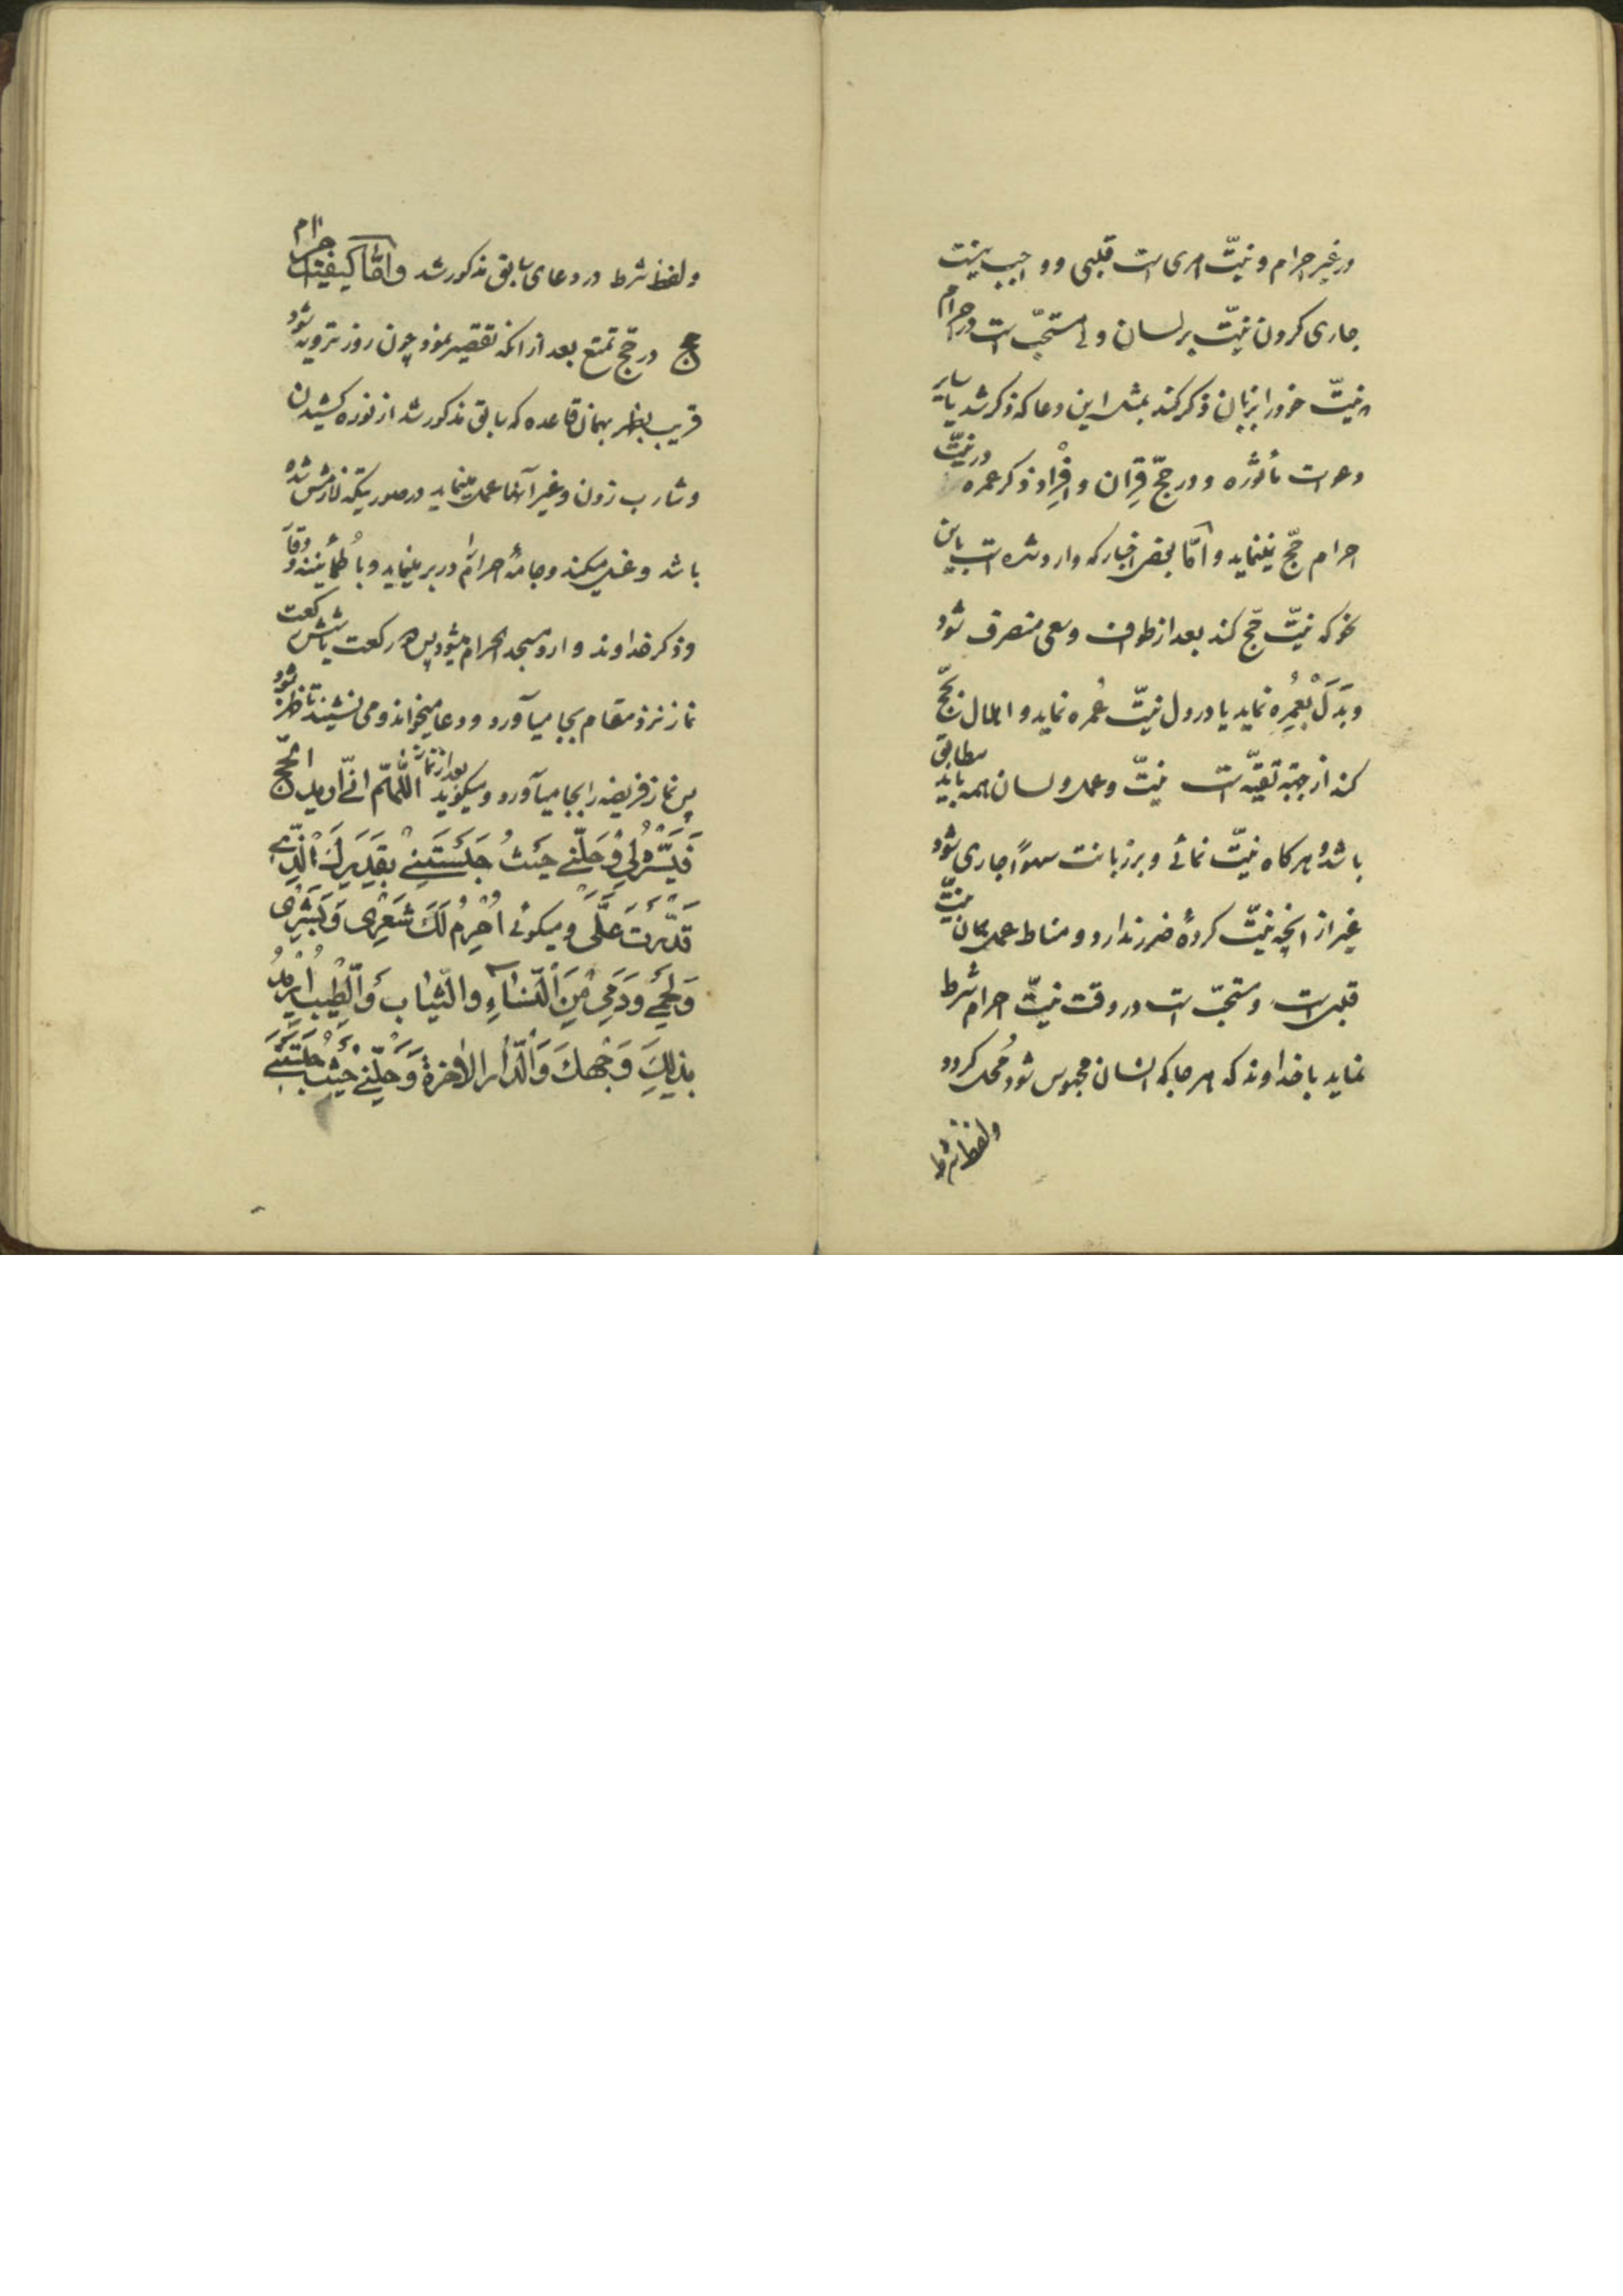 در غیر احرام و نیّت امری است قلبی و واجب نیست
جاری کردن نیّت بر لسان ولی مستحبّ است در احرام
که نیّت خود را بزبان ذکر کند بمثل این دعا که ذکر شد یا سایر
دعوات مأثوره و در حجّ قِران و اِفْراد ذکر عمره در نیّت
احرام حجّ نمینماید و امّا بعض اخبار که وارد شده است باین
نحو که نیّت حجّ کند بعد از طواف و سعی منصرف شود
و بَدَل بعُمْرِه نماید یا در دل نیّت عُمره نماید و اهلال بحجّ
کند از جهة تقیّه است نیّت و عمل و لسان همه باید مطابق
باشد و هر گاه نیّت نمائی و بر زبانت سهواً جاری شود
غیر از انچه نیّت کردهٔ ضرر ندارد و مناط عمل همان نیّت
قلبی است و مستحبّ است در وقت نیّت احرام شرط
نماید با خداوند که هر جا که انسان محبوس شود مُحلّ کردد
ولفظ شرط
ولفظ شرط در دعای سابق مذکور شد و امّا کیفیّت احرام
حج در حجّ تمتع بعد از انکه تقصیر نمود چون روز ترویه شود
قریب بظهر بهمان قاعده که سابق مذکور شد از نوره کشیدن
و شارب زدن و غیر آنها عمل مینماید در صورتیکه لازمش شده
باشد و غسل میکند و جامهٔ احرام را در بر مینماید و با طُمأنینه و وقار
و ذکر خداوند وارد مسجد الحرام میشود پس دو رکعت یا شش رکعت
نماز نزد مقام بجا میآورد و دعا میخواند و می نشیند تا ظهر شود
پس نماز فریضه را بجا میآورد و میکوید بعد از نماز اللّهمّ انّی ارید الحجّ
فَیَسِّرْهُ لی وَ حُلَّنی حَیْثُ حَبَسْتَنی بِقَدَرِكَ الَّذی
قَدَّرْتَ عَلَیَّ و میکوئی اُحْرِمُ لَكَ شَعْری وَ بَشَری
وَ لَحْمی وَ دَمی مِنَ النِّساءِ والثّیاب وَالطّیب اُریدُ
بذلِكَ وَجْهَكَ وَالدّارَ الاخرة وَ حُلَّنی حَیْثُ حَبَسْتَنی